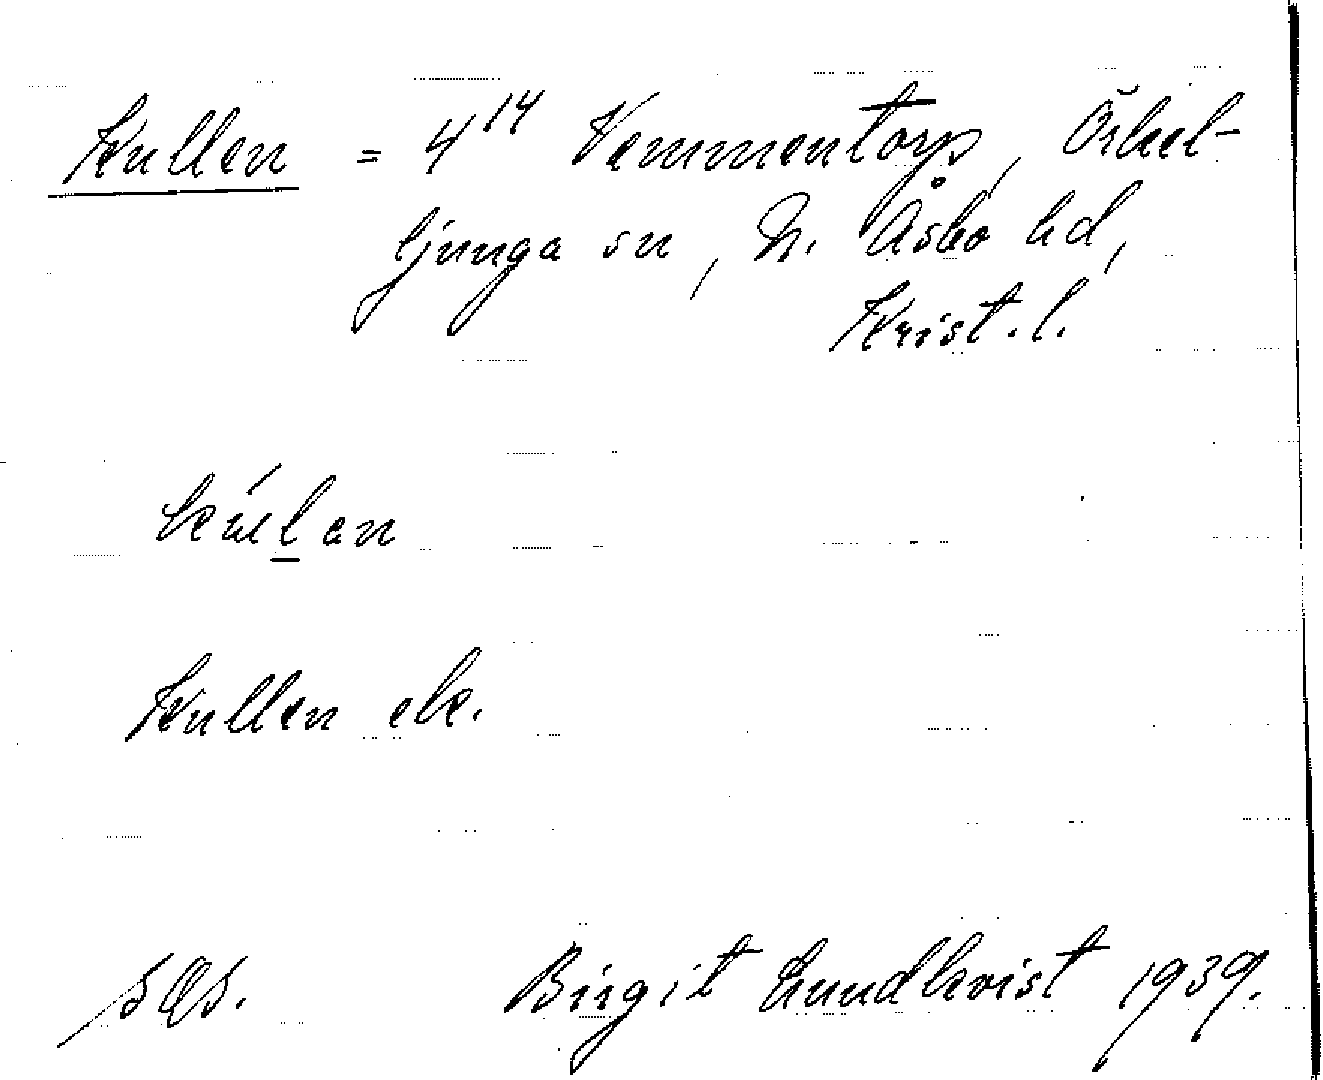 Kullen = 4¹⁴ Vemmentorp, Örkel-
ljunga sn, N. Åsbo hd,
Krist. l.
kúlan
Kullen ek.
SOS. Birgit Lundkvist 1939.